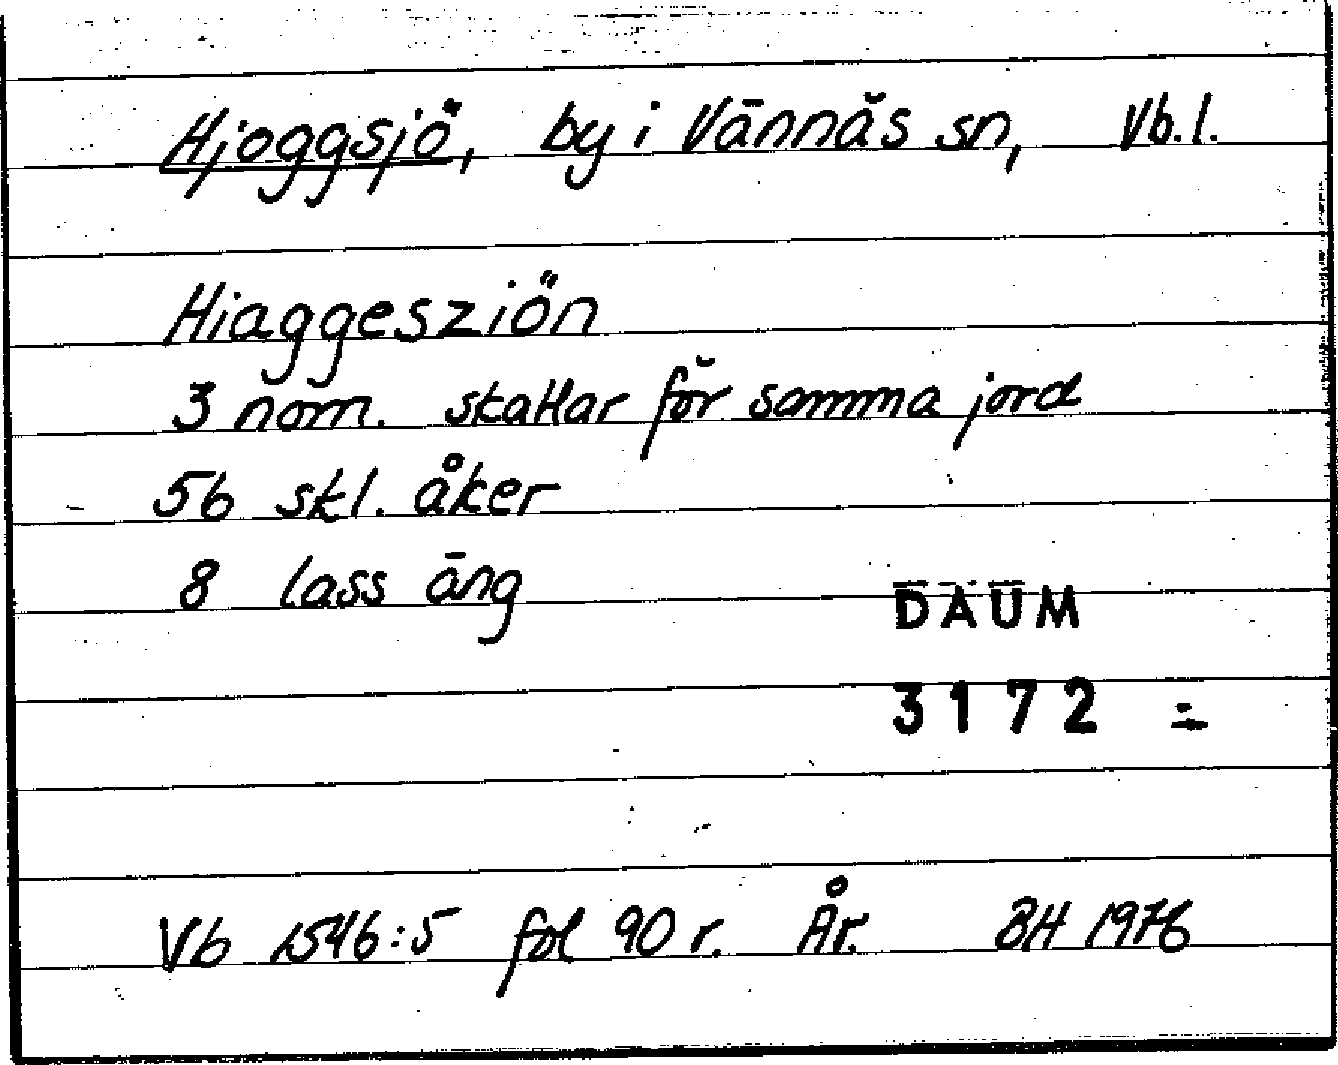 Hjoggsjö, by i Vännäs sn, Vb.l.
Hiaggesziön
3 nom. skattar för samma jord
56 skl. åker
8 lass äng
DAUM
3172 -
Vb 1546:5 fol 90 r. År. BH 1976